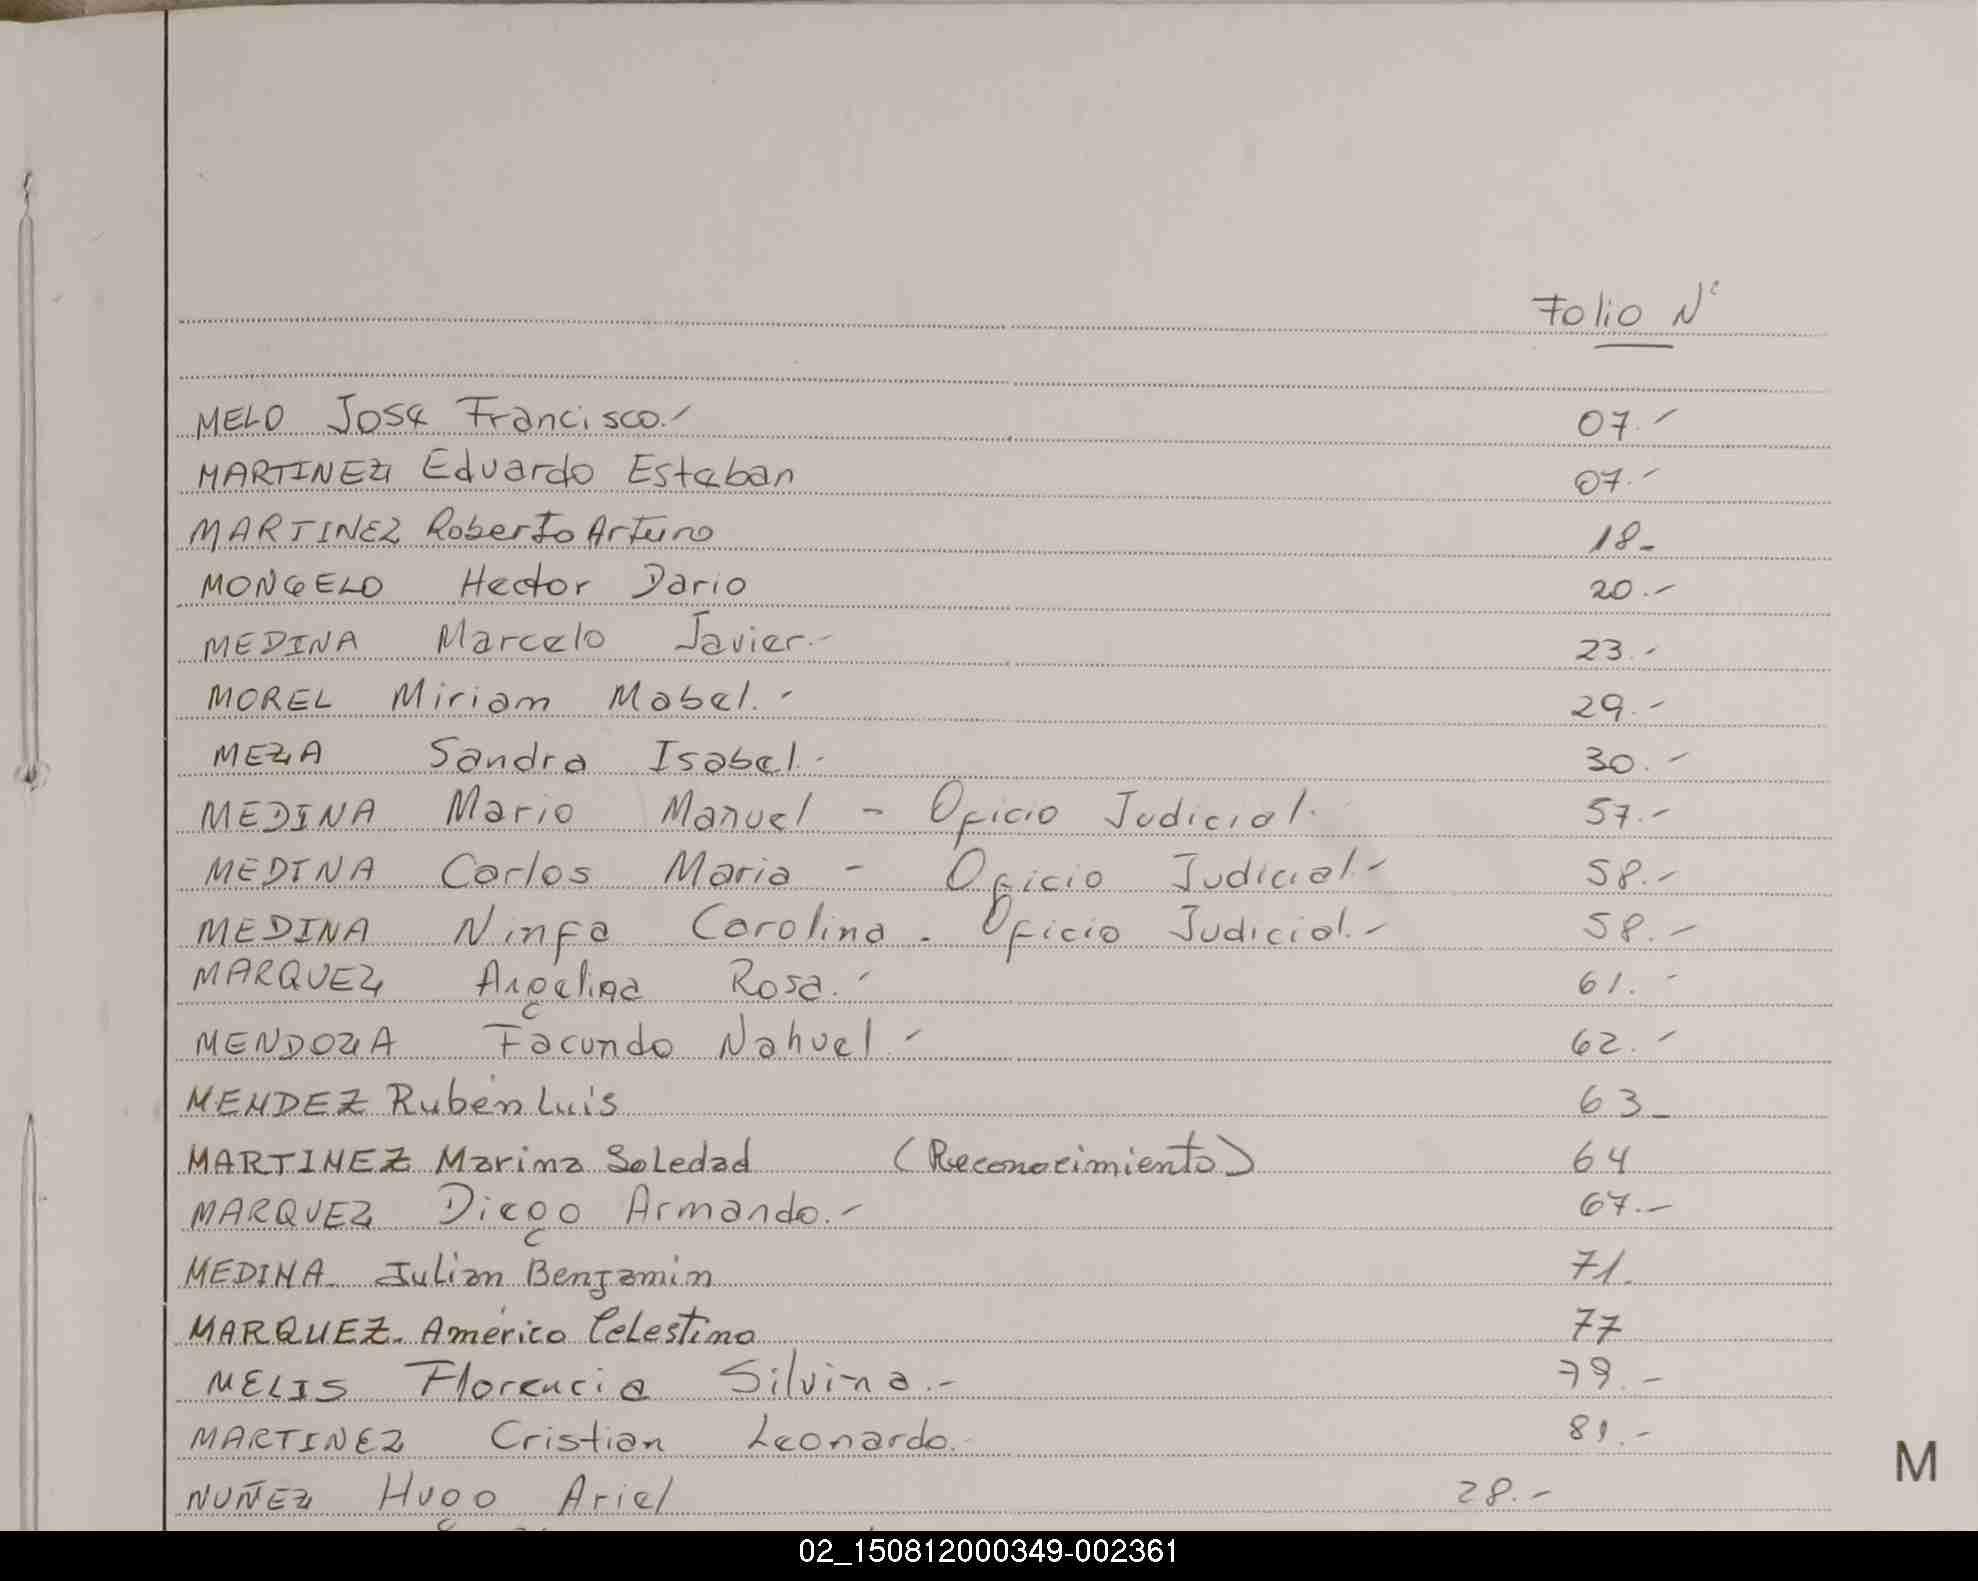 Folio Nº
MELO José Francisco.- 07.-
MARTINEZ Eduardo Esteban 07.-
MARTINEZ Roberto Arturo 18-
MONGELO Hector Dario 20.-
MEDINA Marcelo Javier.- 23.-
MOREL Miriam Mabel.- 29.-
MEZA Sandra Isabel.- 30.-
MEDINA Mario Manuel - Oficio Judicial. 57.-
MEDINA Carlos Maria - Oficio Judicial.- 58.-
MEDINA Ninfa Carolina - Oficio Judicial.- 58.-
MARQUEZ Angelina Rosa.- 61.-
MENDOZA Facundo Nahuel.- 62.-
MENDEZ Rubén Luis 63-
MARTINEZ Marina Soledad (Reconocimiento) 64
MARQUEZ Diego Armando.- 67.-
MEDINA Julian Benjamin 71.
MARQUEZ. Américo Celestino 77
MELIS Florencia Silvina.- 79.-
MARTINEZ Cristian Leonardo.- 81.-
NUÑEZ Hugo Ariel 28.-
M
02_150812000349-002361